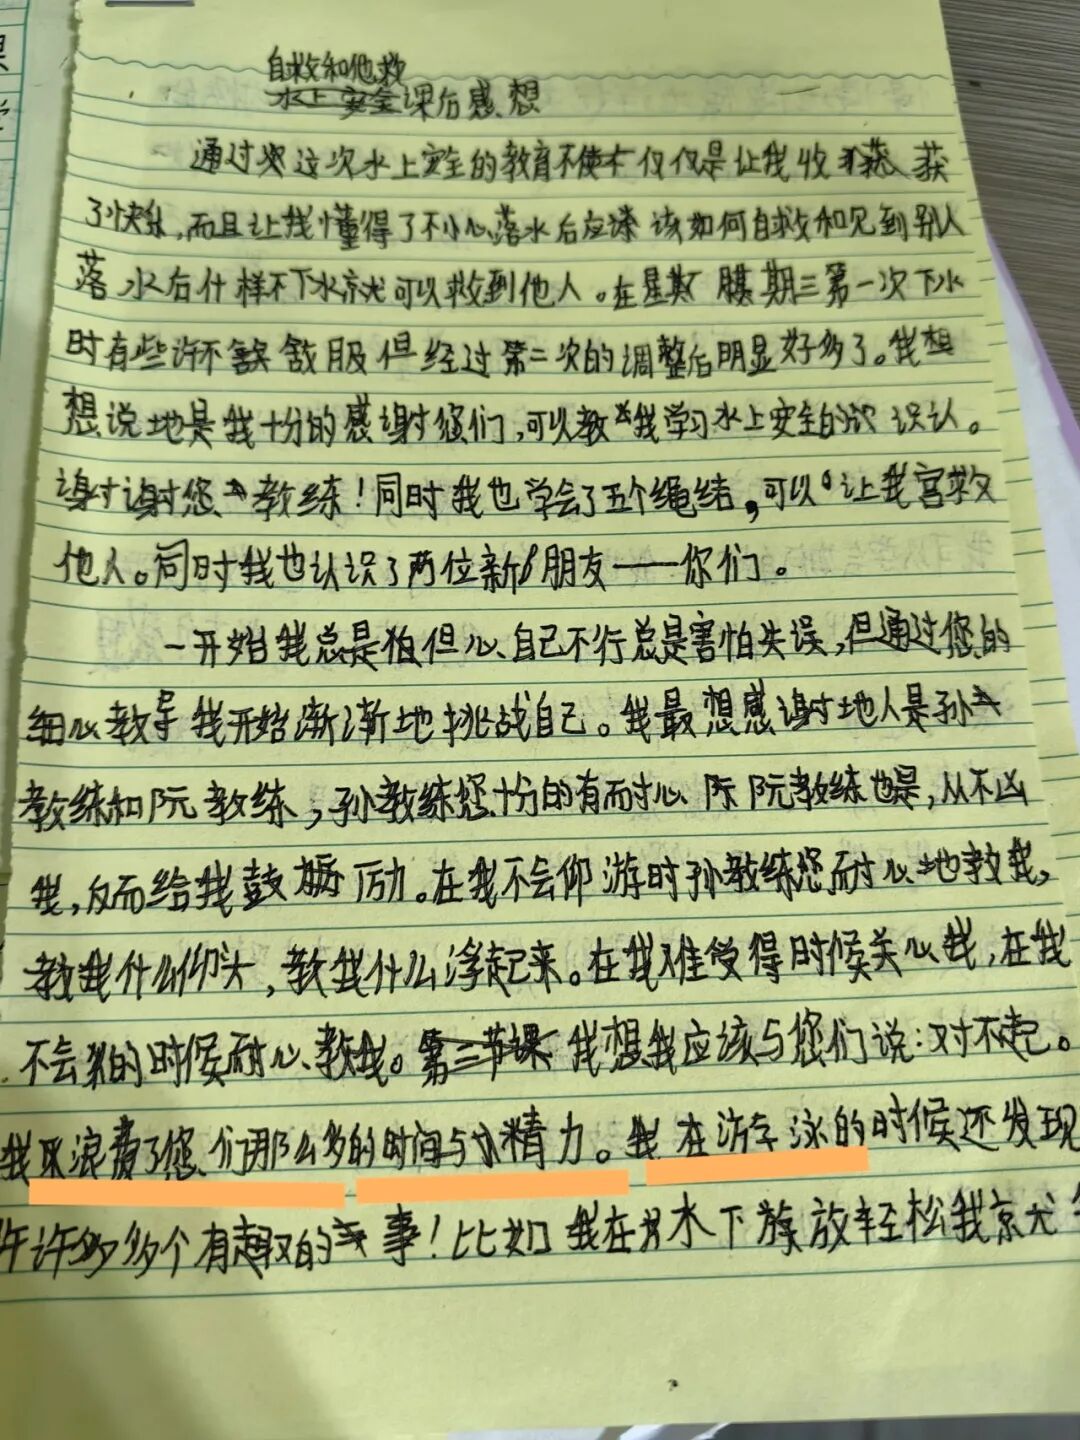 自救和他救
水上安全课后感想
通过这次水上安全的教育不仅仅是让我收获
了快乐,而且让我懂得了不小心落水后应该如何自救和见到别人
落水后什样不下水就可以救到他人。在星期三第一次下水
时有些许不舒服但经过第二次的调整后明显好多了。我想
想说地是我十分的感谢您们,可以教我学习水上安全的认识。
谢谢您教练!同时我也学会了五个绳结,可以让我营救
他人。同时我也认识了两位新朋友——你们。
一开始我总是但心自己不行总是害怕失误,但通过您的
细心教导我开始渐渐地挑战自己。我最想感谢地人是孙
教练和阮教练,孙教练您十分的有耐心阮教练也是,从不凶
我,反而给我鼓励。在我不会仰游时孙教练您耐心地教我,
教我什么仰头,教我什么浮起来。在我难受得时候关心我,在我
不会的时候耐心教我。第三节课我想我应该与您们说:对不起。
我浪费了您们那么多的时间与精力。我在游泳的时候还发现
许许多多个有趣的事!比如我在水下放轻松我就